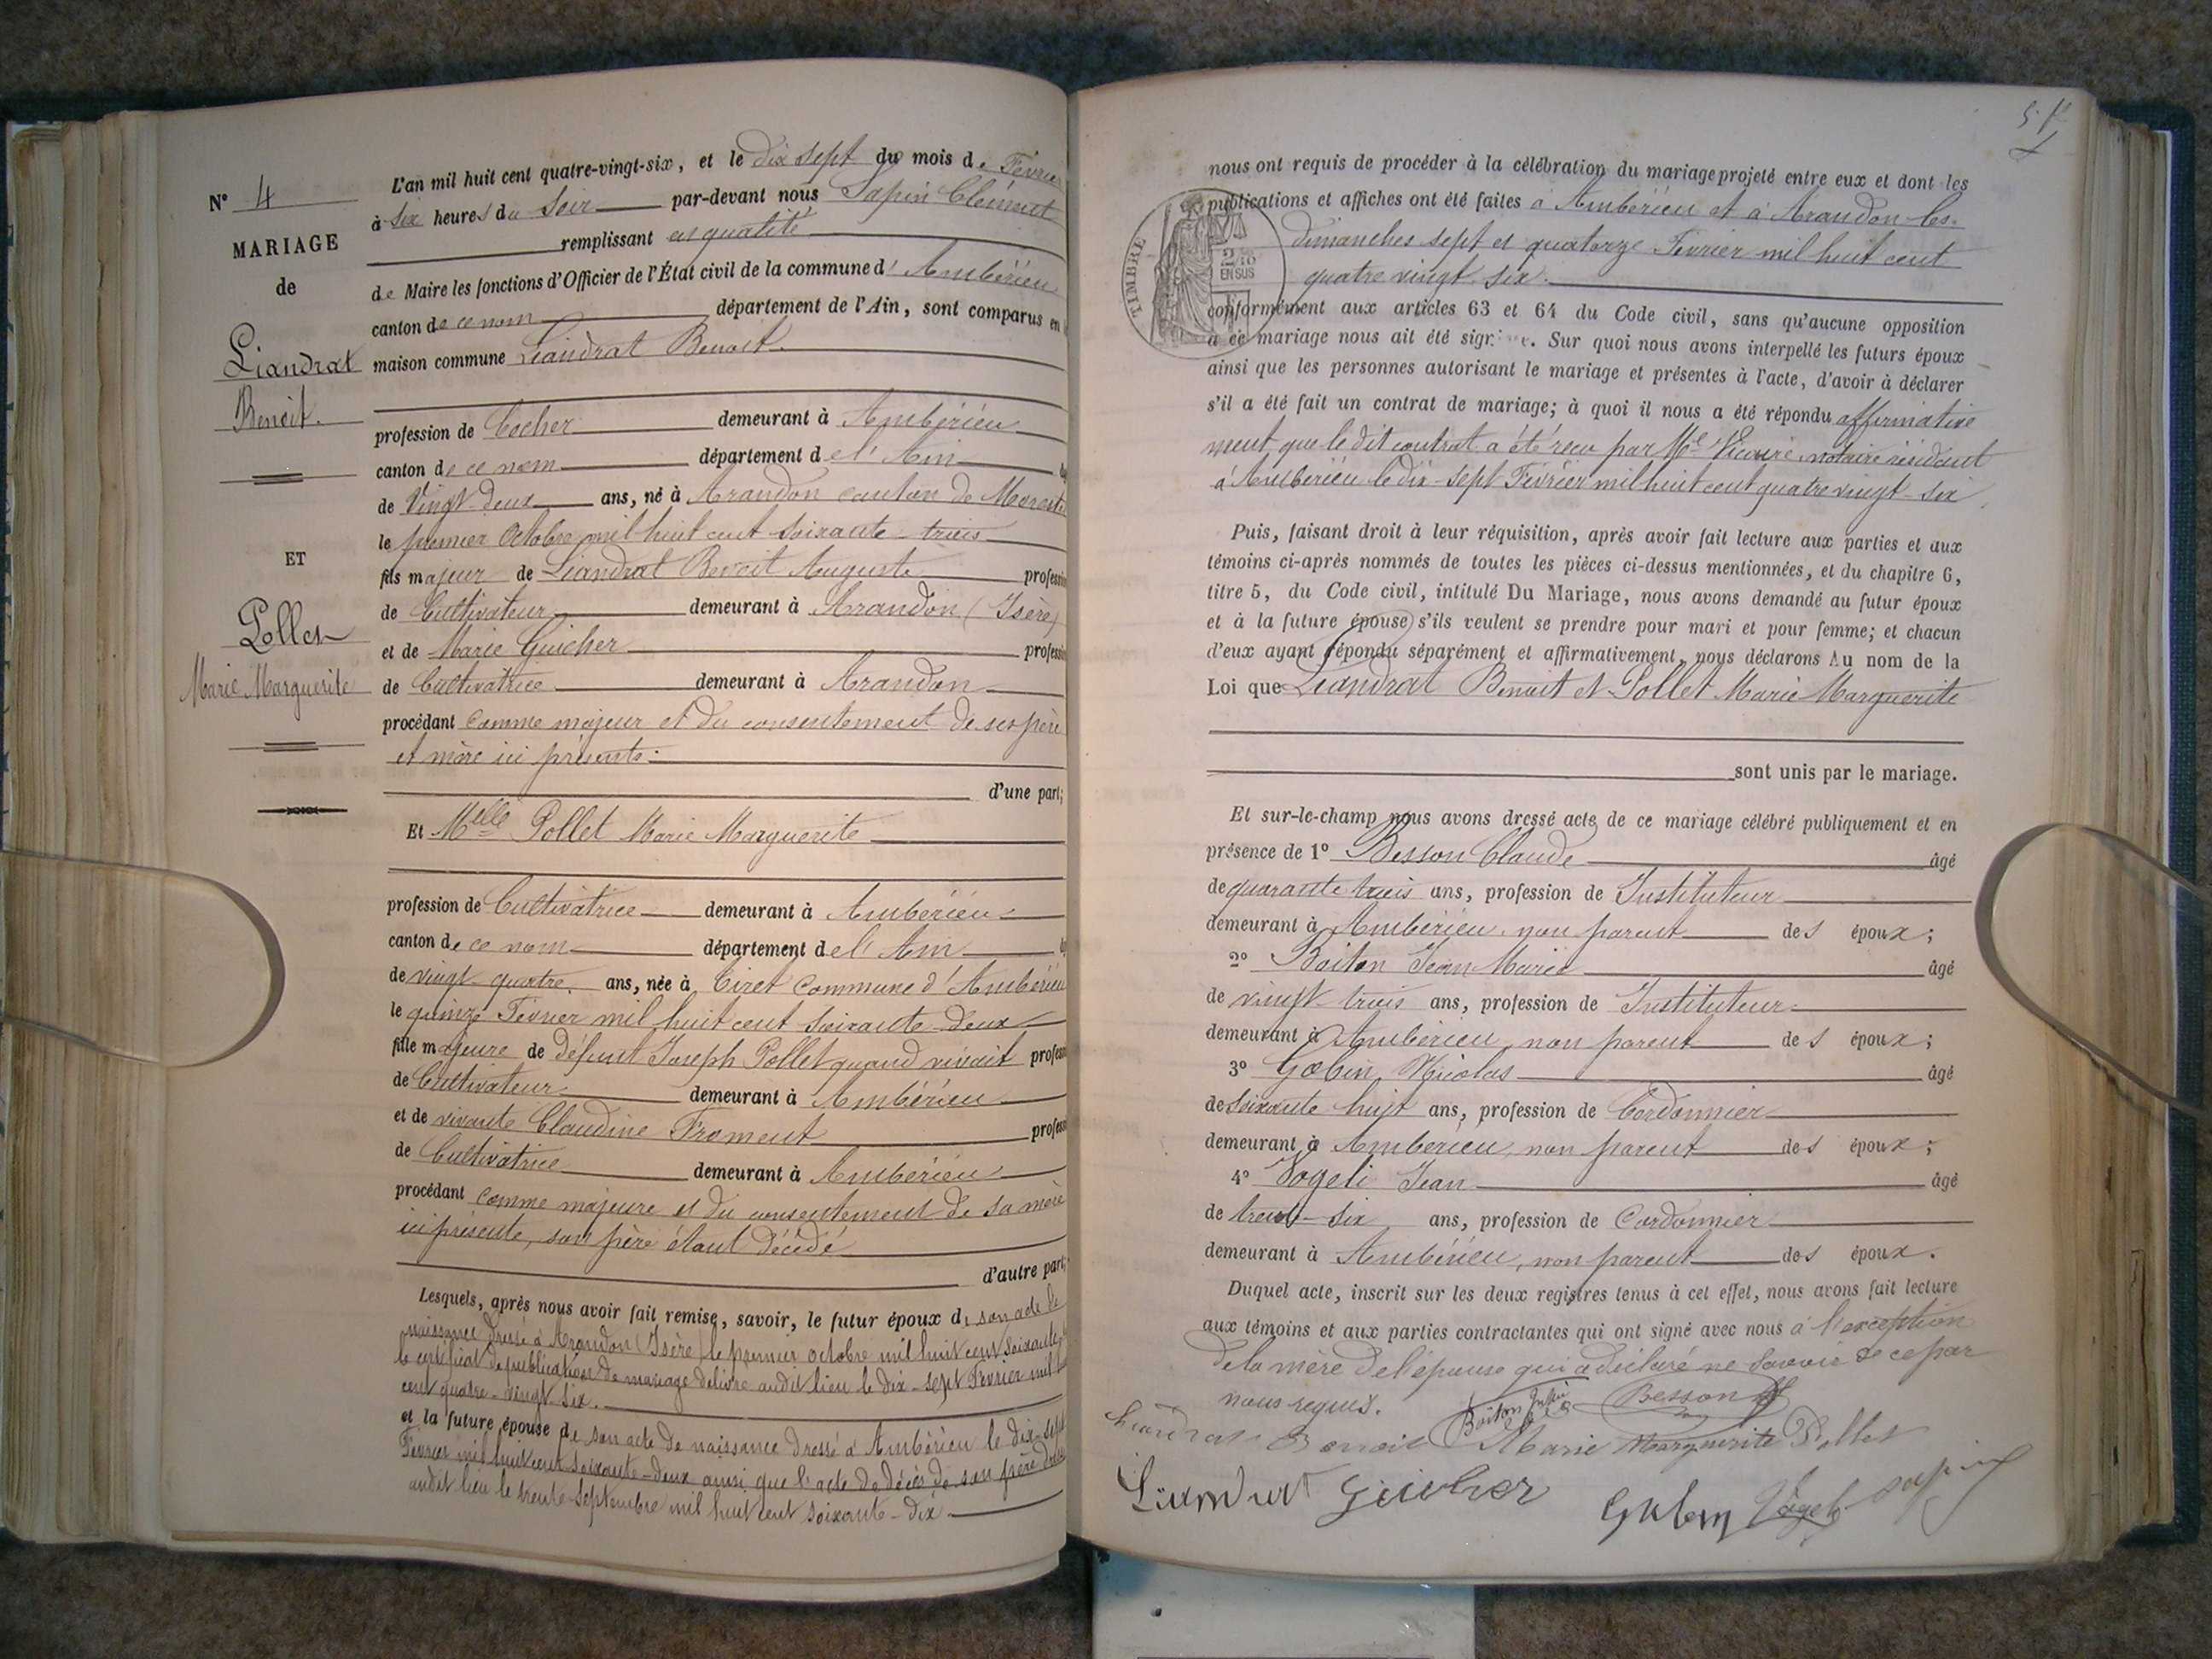 N° 4
MARIAGE
de
Liandrat
Benoit.
ET
Pollet
Marie Marguerite
L'an mil huit cent quatre-vingt-six, et le dix sept du mois de Février
à six heures du Soir par-devant nous Sapin Clément
remplissant en qualité
de Maire les fonctions d'Officier de l'État civil de la commune d'Ambérieu
canton de ce nom département de l'Ain, sont comparus en
maison commune Liandrat Benoit.
profession de Cocher demeurant à Ambérieu
canton de ce nom département de l'Ain
de Vingt-deux ans, né à Arandon canton de Morestel
le premier Octobre mil huit cent soixante-trois
fils majeur de Liandrat Benoit Auguste profession
de Cultivateur demeurant à Arandon (Isère)
et de Marie Guicher profession
de Cultivatrice demeurant à Arandon
procédant comme majeur et du consentement de ses père
et mère ici présents.
d'une part;
Et Melle Pollet Marie Marguerite
profession de Cultivatrice demeurant à Ambérieu
canton de ce nom département de l'Ain
de vingt-quatre ans, née à Tiret Commune d'Ambérieu
le quinze Février mil huit cent soixante-deux
fille majeure de défunt Joseph Pollet quand vivait profession
de Cultivateur demeurant à Ambérieu
et de vivante Claudine Froment profession
de Cultivatrice demeurant à Ambérieu
procédant comme majeure et du consentement de sa mère
ici présente, son père étant décédé
d'autre part;
Lesquels, après nous avoir fait remise, savoir, le futur époux de son acte de
naissance dressé à Arandon (Isère) le premier octobre mil huit cent soixante
le certificat de publication de mariage délivré audit lieu le dix-sept Février mil
cent quatre-vingt-six.
et la future épouse de son acte de naissance dressé à Ambérieu le dix-sept
Février mil huit cent soixante-deux ainsi que l'acte de décès de son père
audit lieu le trente Septembre mil huit cent soixante-dix
nous ont requis de procéder à la célébration du mariage projeté entre eux et dont les
publications et affiches ont été faites à Ambérieu et à Arandon les
dimanches sept et quatorze Février mil huit cent
quatre vingt six.
TIMBRE
EN SUS
conformément aux articles 63 et 64 du Code civil, sans qu'aucune opposition
à ce mariage nous ait été signifiée. Sur quoi nous avons interpellé les futurs époux
ainsi que les personnes autorisant le mariage et présentes à l'acte, d'avoir à déclarer
s'il a été fait un contrat de mariage; à quoi il nous a été répondu affirmative
ment, que le dit contrat a été reçu par Me notaire résidant
à Ambérieu le dix-sept Février mil huit cent quatre vingt-six
Puis, faisant droit à leur réquisition, après avoir fait lecture aux parties et aux
témoins ci-après nommés de toutes les pièces ci-dessus mentionnées, et du chapitre 6,
titre 5, du Code civil, intitulé Du Mariage, nous avons demandé au futur époux
et à la future épouse s'ils veulent se prendre pour mari et pour femme; et chacun
d'eux ayant répondu séparément et affirmativement, nous déclarons Au nom de la
Loi que Liandrat Benoit et Pollet Marie Marguerite
sont unis par le mariage.
Et sur-le-champ nous avons dressé acte de ce mariage célébré publiquement et en
présence de 1° Besson Claude âgé
de quarante trois ans, profession de Instituteur
demeurant à Ambérieu, non parent des époux;
2° Boiton Jean Marie âgé
de vingt-trois ans, profession de Instituteur
demeurant à Ambérieu, non parent des époux;
3° Gobin Nicolas âgé
de Soixante huit ans, profession de Cordonnier
demeurant à Ambérieu, non parent des époux;
4° Vogeli Jean âgé
de trente-six ans, profession de Cordonnier
demeurant à Ambérieu, non parent des époux.
Duquel acte, inscrit sur les deux registres tenus à cet effet, nous avons fait lecture
aux témoins et aux parties contractantes qui ont signé avec nous à l'exception
de la mère de l'épouse qui a déclaré ne savoir de ce par
nous requis.
Boiton Besson
Liandrat Benoit Marie Marguerite Pollet
Liandrat Guicher Gobin Vogeli Sapin